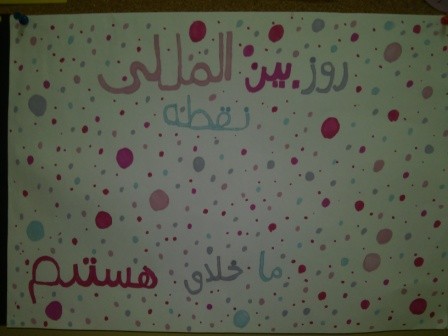 روز بین المللی
نقطه
ما خلاق هستیم